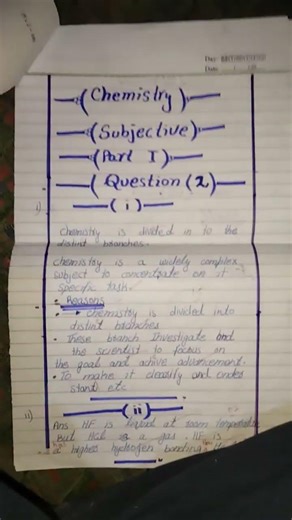 (Chemistry)
(Subjective)
(Part I)
(Question (2)
(i)
i)
Chemistry is divided in to the
distint branches.
Chemistry is a widely complex
subject to concentrate on it
specific task.
• Reasons
→ Chemistry is divided into
distint branches
• These branch Investigate and
the scientist to focus on
the goal and achive advancement.
• To make it classify and under
stand etc
ii)
(ii)
Ans HF is liquid at room temperature
But HCl is a gas. HF is
a higher hydrogen bonding